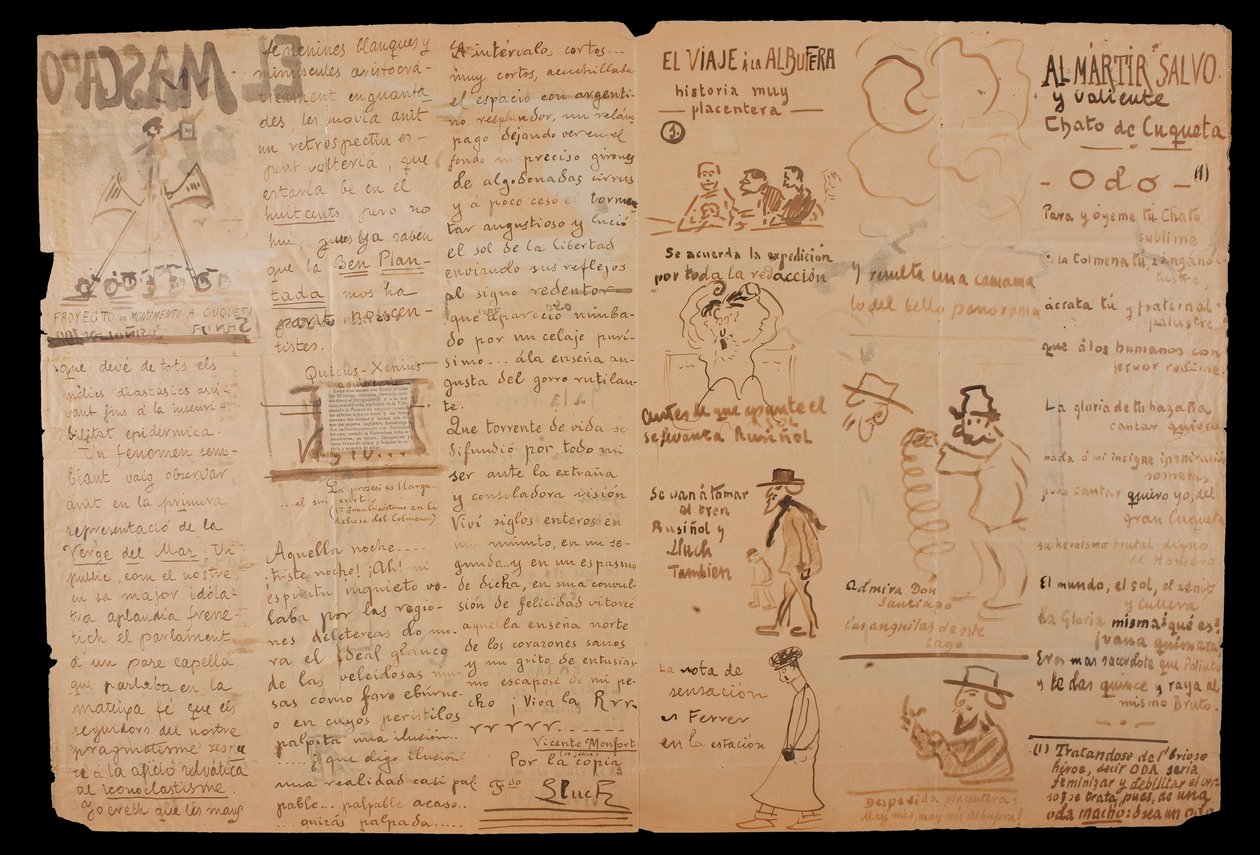 EL MASCARO
PROYECTO DE MONUMENTO A CUQUETA
que devé de tots els
médics diastásics arri-
vant fins á la insensi-
bilitat epidermica.
Un fenomen sem-
blant vaig observar,
anit en la primera
representació de la
Verge del Mar. Un
public, com el nostre,
en sa major idóla-
tra aplaudia frene-
tich el parlament
d'un pare capellá
que parlaba en la
mateixa fé que els
seguidors del nostre
pragmatisme respe
te á la afició
al iconoclastisme.
Yo crech que les mans
femenines blanques y
minuscules aristocrá-
ticament enguanta-
des, les movia anit
un retrospectiu es-
perit volteriá, que
estaria be en el
huitcents, pero no
hui, pues ya saben
que la Ben Plan-
tada mos ha
parit noucen-
tistes.
Quiclus-Xenius
... el mi
La prosсió es llarga...
Aquella noche....
¡triste noche! ¡Ah! mi
espíritu inquieto vo-
laba por las regio-
nes deletereas do mo-
ra el ideal glauco
de las veleidosas mu-
sas como faro ebúrne-
o en cuyos peristilos
palpita una ilusión...
¿que digo ilusión?
una realidad casi pal
pable... palpable acaso..
... quizás palpada.....
A intérvalos cortos...
muy cortos, acuchillaba
el espacio con argenti-
no resplandor, un relám-
pago dejando ver en el
fondo impreciso girones
de algodonadas cirrus
y á poco cesó el tormen
tar angustioso y lució
el sol de la libertad
enviando sus reflejos
al signo redentor
que apareció nimba-
do por un celaje purí-
simo... á la enseña au-
gusta del gorro rutilan-
te.
Que torrente de vida se
difundió por todo mi
ser ante la extraña
y consoladora visión
Viví siglos enteros en
un minuto, en un se-
gundo.. y en un espasmo
de dicha, en una convul-
sión de felicidad vitoreé
aquella enseña norte
de los corazones sanos
y un grito de entusias-
mo escapose de mi pe-
cho ¡Viva la Rrr
rrrrr.......
Vicente Monfort
Por la copia
Fdo Lluch
EL VIAJE á la ALBUFERA
historia muy
placentera
1.
Se acuerda la expedición
por toda la redacción
Antes de que apunte el
se levanta Rusiñol
Se van á tomar
el tren
Rusiñol y
Lluch
Tambien
La nota de
sensación
es Ferrer
en la estación
Y resulta una camama
lo del bello panorama
Admira Don
Santiago
las anguilas de este
lago
Despedida placentera:
May més, may més Albufera!
AL MÁRTIR SALVO
y valiente
Chato de Cuqueta
- Odo - (1)
Para y óyeme tu Chato
sublime
de la Colmena tu zángano i-
lustre,
ácrata tú y fraternal
palustre
que á los humanos con
fervor redime.
La gloria de tu hazaña
cantar quiero
nada á mi insigne inspiració
someto,
pues cantar quiero yo, del
gran Cuqueta
su heroísmo brutal digno
de Homero.
El mundo, el sol, el zénit
y Cullera
la Gloria misma ¿qué es?
¡vana quimera
Eres mas sacerdote que Poliuto
y le das quince y raya al
mismo Bruto.
(1) Tratandose del brioso
héroe, decir ODA sería
feminizar y debilitar el ver-
so; se trata pues, de una
oda macho: ósea un odo